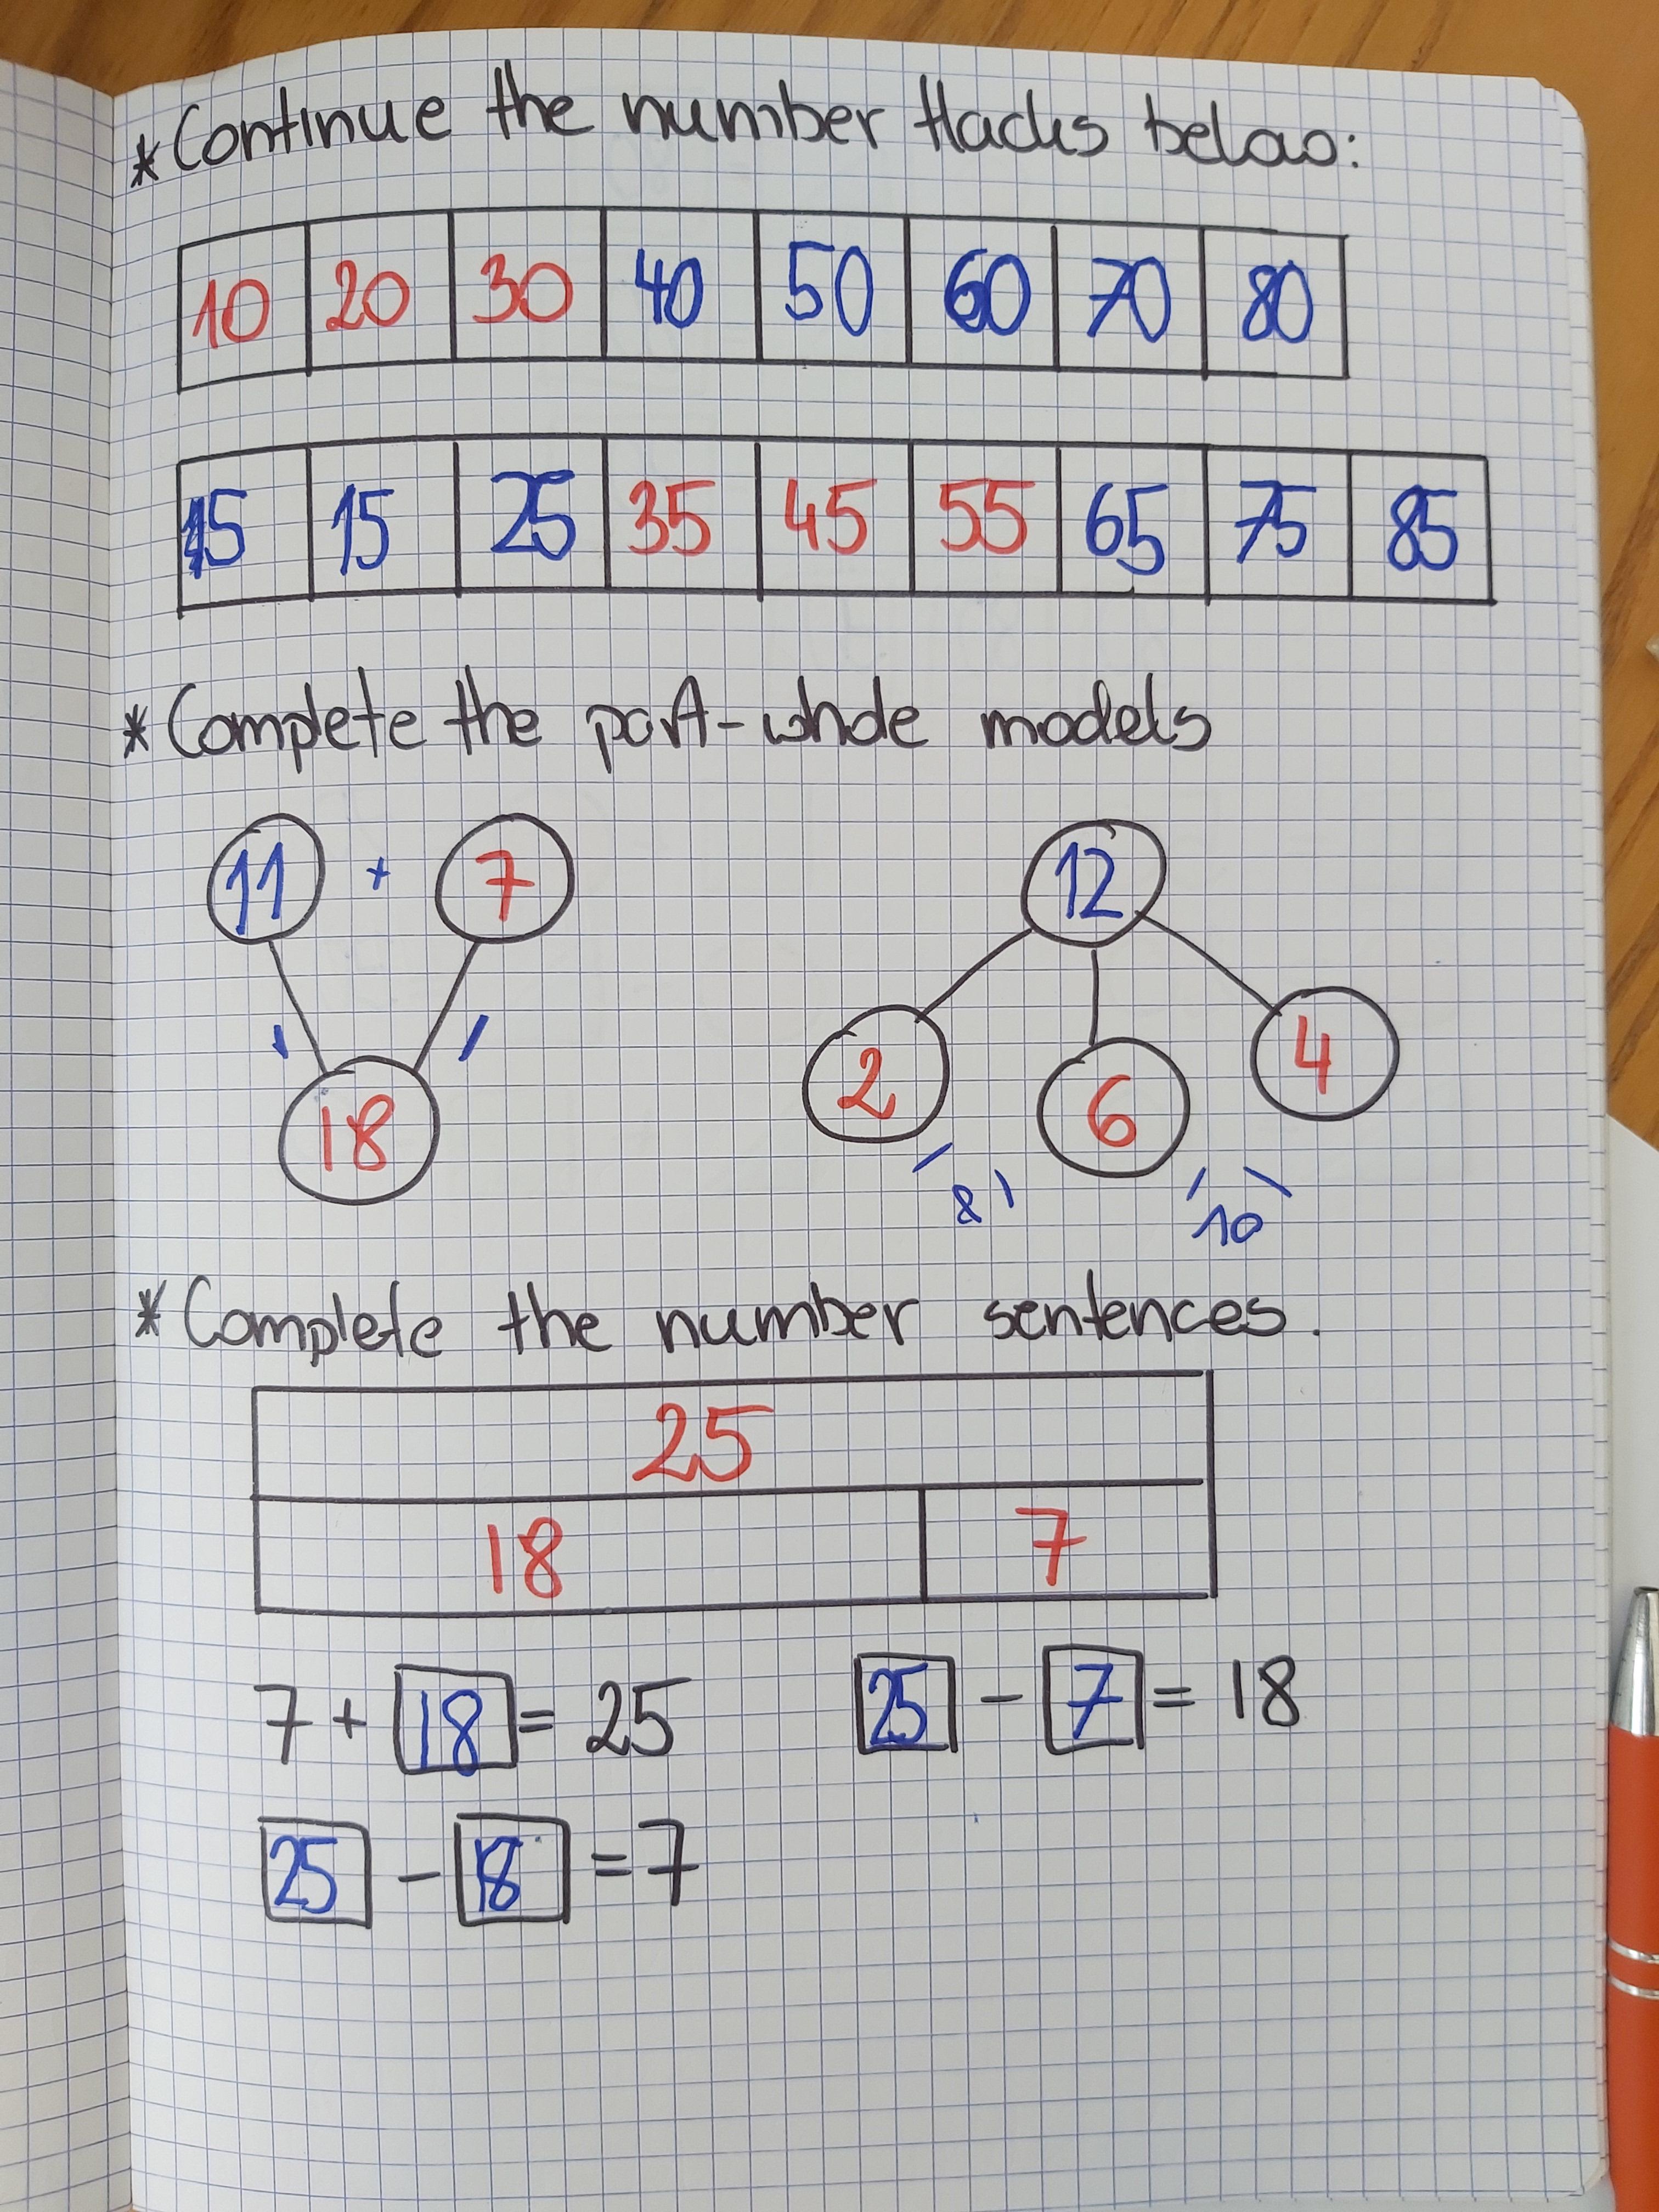 * Continue the number tracks below:
10 20 30 40 50 60 70 80
5 15 25 35 45 55 65 75 85
* Complete the part-whole models
11 + 7
18
12
2 6 4
8 10
* Complete the number sentences.
25
18 7
7 + 18 = 25
25 - 7 = 18
25 - 18 = 7